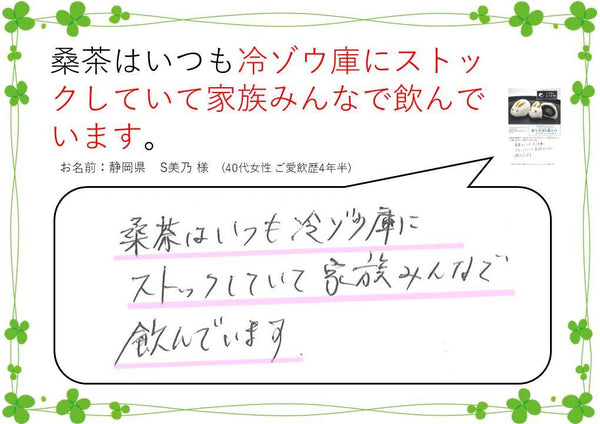 桑茶はいつも冷ゾウ庫にストッ
クしていて家族みんなで飲んで
います。
お名前：静岡県　S美乃 様　(40代女性 ご愛飲歴4年半)
桑茶はいつも冷ゾウ庫に
ストックしていて家族みんなで
飲んでいます